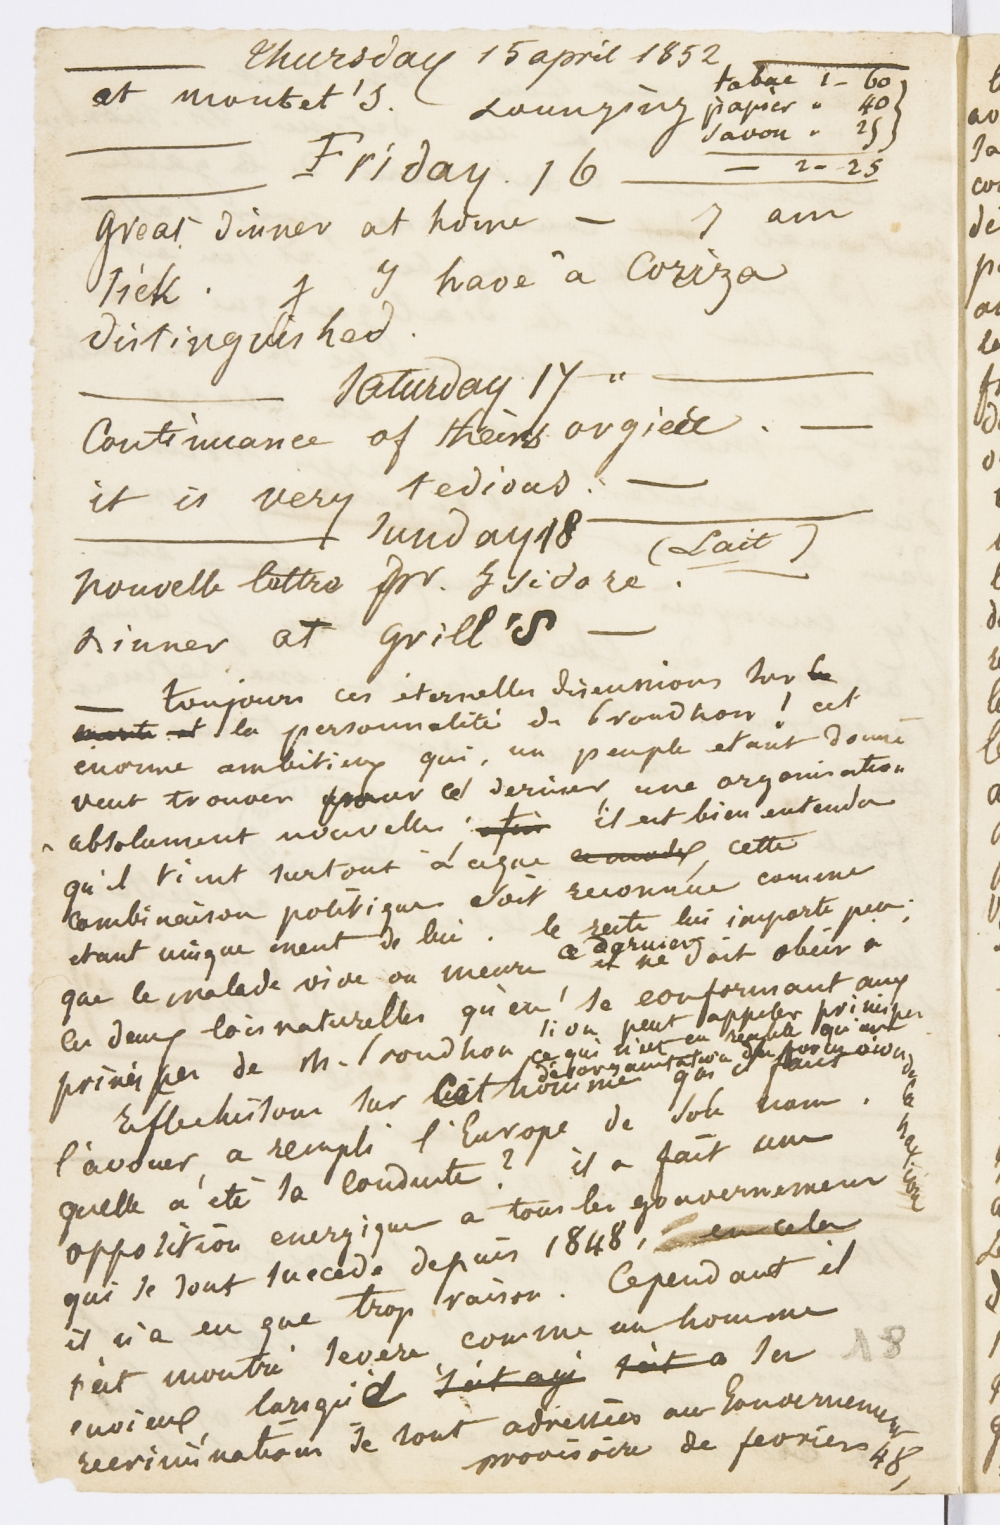 Thursday 15 april 1852
at montet's. Lounging
tabac 1 - 60
papier " 40
savon " 25
— 2 - 25
Friday. 16
great dinner at home — I am
sick. I have a Coriza
distinguished.
Saturday 17 "
Continuance of theirs orgiéé. —
it is very tedious. —
Sunday 18
(Lait)
nouvelle lettre pr. Isidore.
dinner at grill's —
— toujours ces éternelles discussions sur le
la personnalité de Proudhon ! cet
enorme ambitieux qui, un peuple etant donné
veut trouver pour ce dernier une organisation
absolument nouvelle; afin il est bien entendu
qu'il tient surtout à ce que ce mode, cette
combinaison politique soit reconnue comme
etant uniquement de lui. le reste lui importe peu;
que le malade vive ou meure ce dernier et ne doit obéir à
ces deux lois naturelles qu'en se conformant aux
principes de M. Proudhon si on peut appeler principes
ce qui n'est en réalité qu'une
désorganisation des forces vives de la nation
Reflechissons sur cet homme qui il faut
l'avouer, a rempli l'Europe de son nom.
quelle a été sa conduite ? il a fait une
opposition energique a tous les gouvernement
qui se sont succédé depuis 1848, en cela
il n'a eu que trop raison. Cependant il
s'est montré severe comme un homme
envieux, lorsqu'il s'est agi s'est a ses
recriminations se sont adressées au Gouvernement
provisoire de fevrier 48,
18